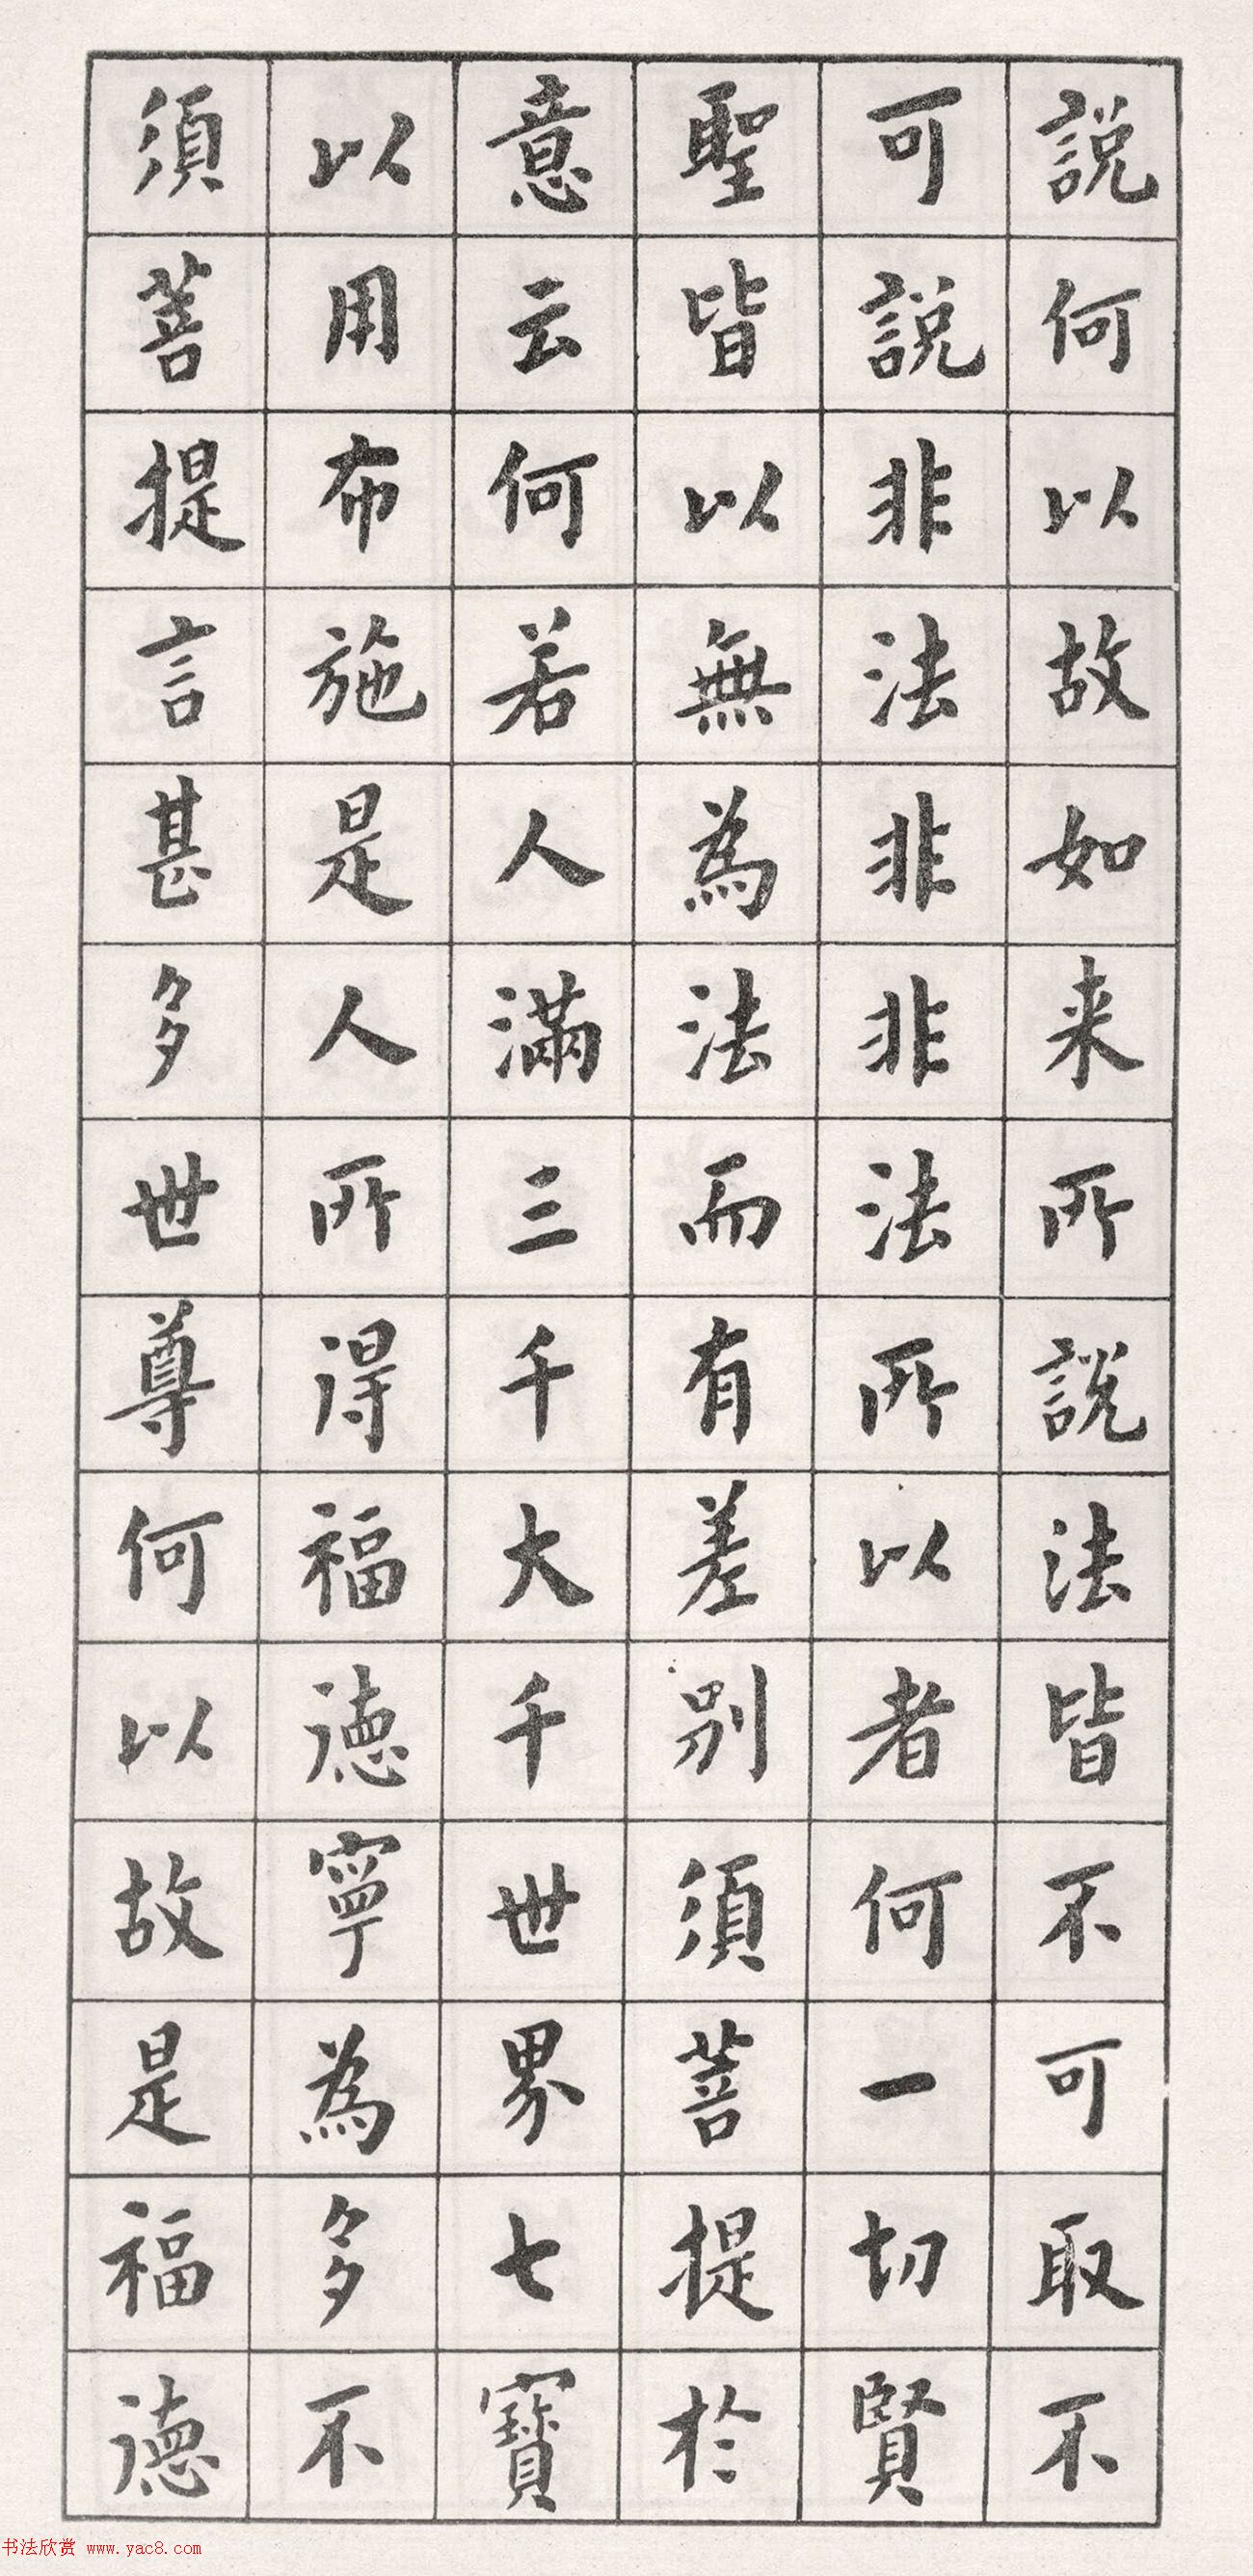 說何以故如来所說法皆不可取不
可說非法非非法所以者何一切賢
聖皆以無為法而有差别須菩提於
意云何若人滿三千大千世界七寶
以用布施是人所得福德寧為多不
須菩提言甚多世尊何以故是福德
书法欣赏 www.yac8.com